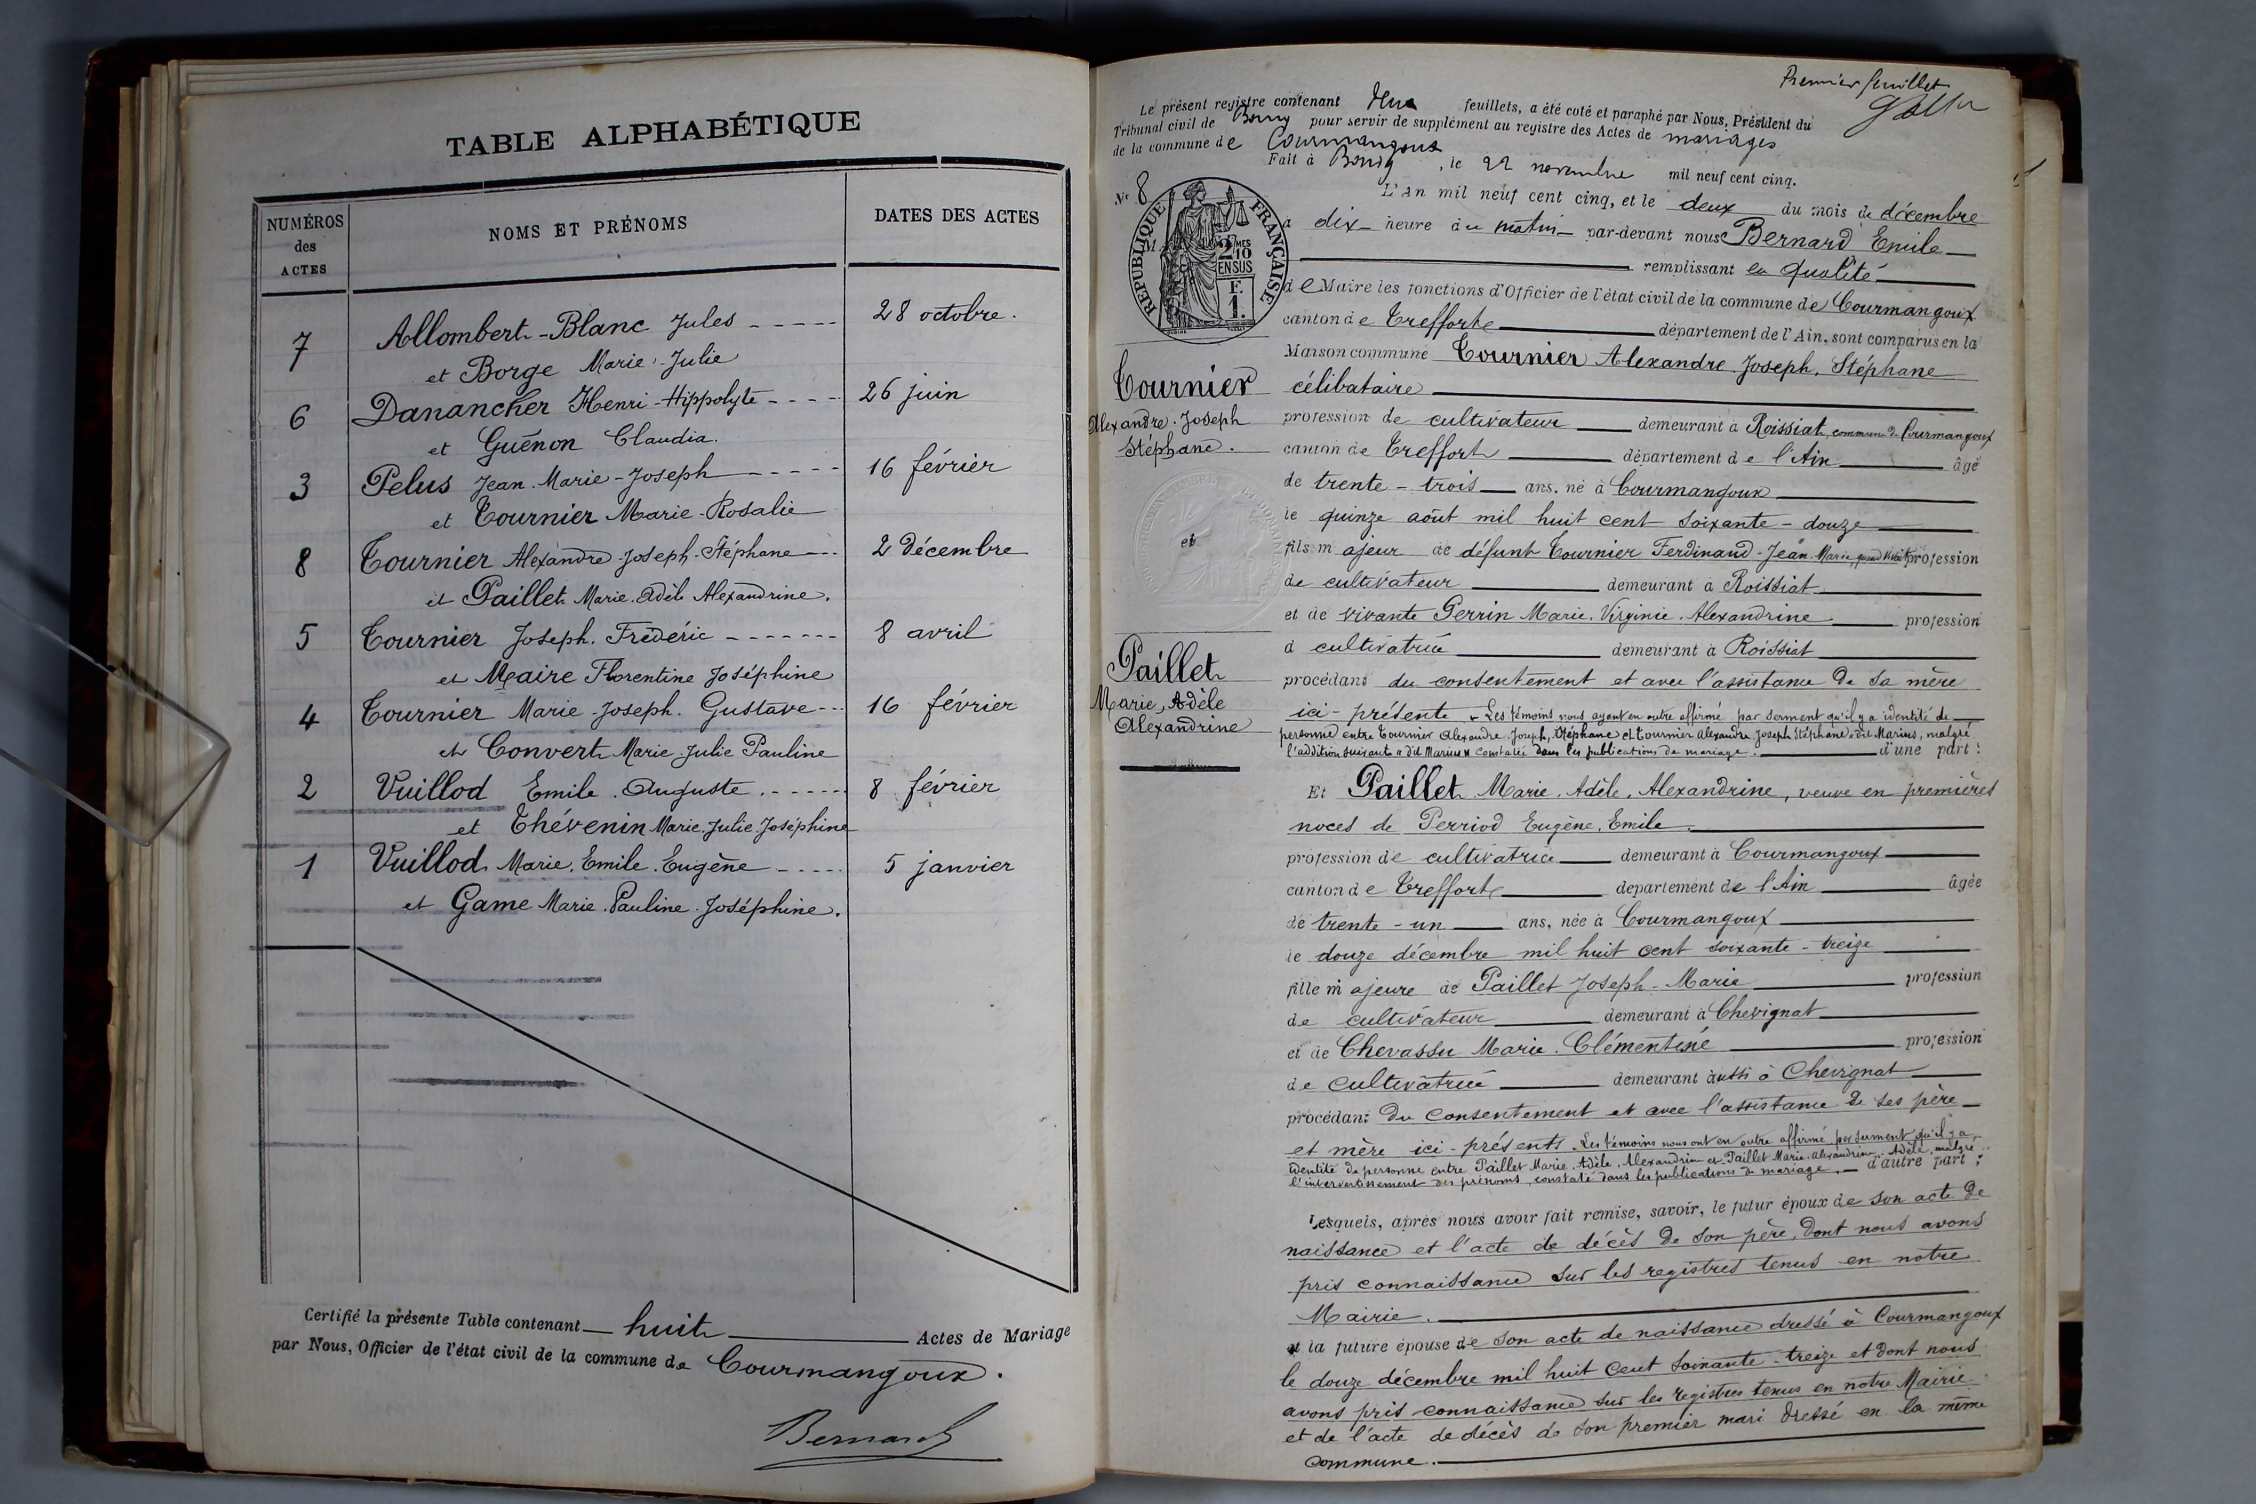 TABLE ALPHABÉTIQUE
NUMÉROS des ACTES
NOMS ET PRÉNOMS
DATES DES ACTES
7 Allombert-Blanc Jules 28 octobre.
et Borge Marie-Julie
6 Danancher Henri-Hippolyte 26 juin
et Guénon Claudia.
3 Pelus Jean-Marie-Joseph 16 février
et Tournier Marie-Rosalie
8 Tournier Alexandre-Joseph-Stéphane 2 Décembre
et Paillet Marie-Adèle Alexandrine.
5 Tournier Joseph. Frédéric 8 avril
et Maire Florentine Joséphine
4 Tournier Marie-Joseph. Gustave 16 février
et Convert Marie-Julie Pauline
2 Vuillod Emile. Auguste. 8 février
et Thévenin Marie. Julie. Joséphine
1 Vuillod Marie. Emile. Eugène 5 janvier
et Game Marie. Pauline. Joséphine.
Certifié la présente Table contenant huit Actes de Mariage
par Nous, Officier de l'état civil de la commune de Courmangoux.
Bernard
Premier feuillet
Le présent registre contenant deux feuillets, a été coté et paraphé par Nous, Président du
Tribunal civil de Bourg pour servir de supplément au registre des Actes de mariages
de la commune de Courmangoux
Fait à Bourg, le 22 novembre mil neuf cent cinq.
No 8
RÉPUBLIQUE FRANÇAISE
2/10
EN SUS
F.
1.
L'an mil neuf cent cinq, et le deux du mois de décembre
à dix heure du matin par-devant nous Bernard Emile
remplissant en qualité
de Maire les fonctions d'Officier de l'état civil de la commune de Courmangoux
canton de Treffort département de l'Ain, sont comparus en la
Maison commune Tournier Alexandre. Joseph. Stéphane
Tournier
Alexandre. Joseph
Stéphane.
célibataire
profession de cultivateur demeurant à Roissiat, commune de Courmangoux
canton de Treffort département de l'Ain âgé
de trente-trois ans, né à Courmangoux
le quinze août mil huit cent soixante-douze
et
fils majeur de défunt Tournier Ferdinand-Jean-Marie, quand vivait profession
de cultivateur demeurant à Roissiat
et de vivante Perrin Marie. Virginie. Alexandrine profession
d cultivatrice demeurant à Roissiat
Paillet
Marie, Adèle
Alexandrine
procédant du consentement et avec l'assistance de sa mère
ici-présente. Les témoins nous ayant en outre affirmé par serment qu'il y a identité de
personne entre Tournier Alexandre. Joseph, Stéphane et Tournier Alexandre Joseph Stéphane "dit Marius, malgré
l'addition suivante "dit Marius" constatée dans les publications de mariage. d'une part:
Et Paillet Marie. Adèle. Alexandrine, veuve en premières
noces de Perriod Eugène. Emile.
profession de cultivatrice demeurant à Courmangoux
canton de Treffort departement de l'Ain âgée
de trente-un ans, née à Courmangoux
le douze décembre mil huit cent soixante-treize
fille majeure de Paillet Joseph-Marie profession
de cultivateur demeurant à Chevignat
et de Chevassu Marie. Clémentine profession
de cultivatrice demeurant aussi à Chevignat
procédant du consentement et avec l'assistance de ses père
et mère ici-présents. Les témoins nous ont en outre affirmé par serment qu'il y a
identité de personne entre Paillet Marie. Adèle. Alexandrine et Paillet Marie. Alexandrine. Adèle, malgré
l'intervertissement des prénoms, constaté dans les publications de mariage. d'autre part;
Lesquels, après nous avoir fait remise, savoir, le futur époux de son acte de
naissance et l'acte de décès de son père, dont nous avons
pris connaissance sur les registres tenus en notre
Mairie.
et la future épouse de son acte de naissance dressé à Courmangoux
le douze décembre mil huit cent soixante-treize et dont nous
avons pris connaissance sur les registres tenus en notre Mairie
et de l'acte de décès de son premier mari dressé en la même
commune.